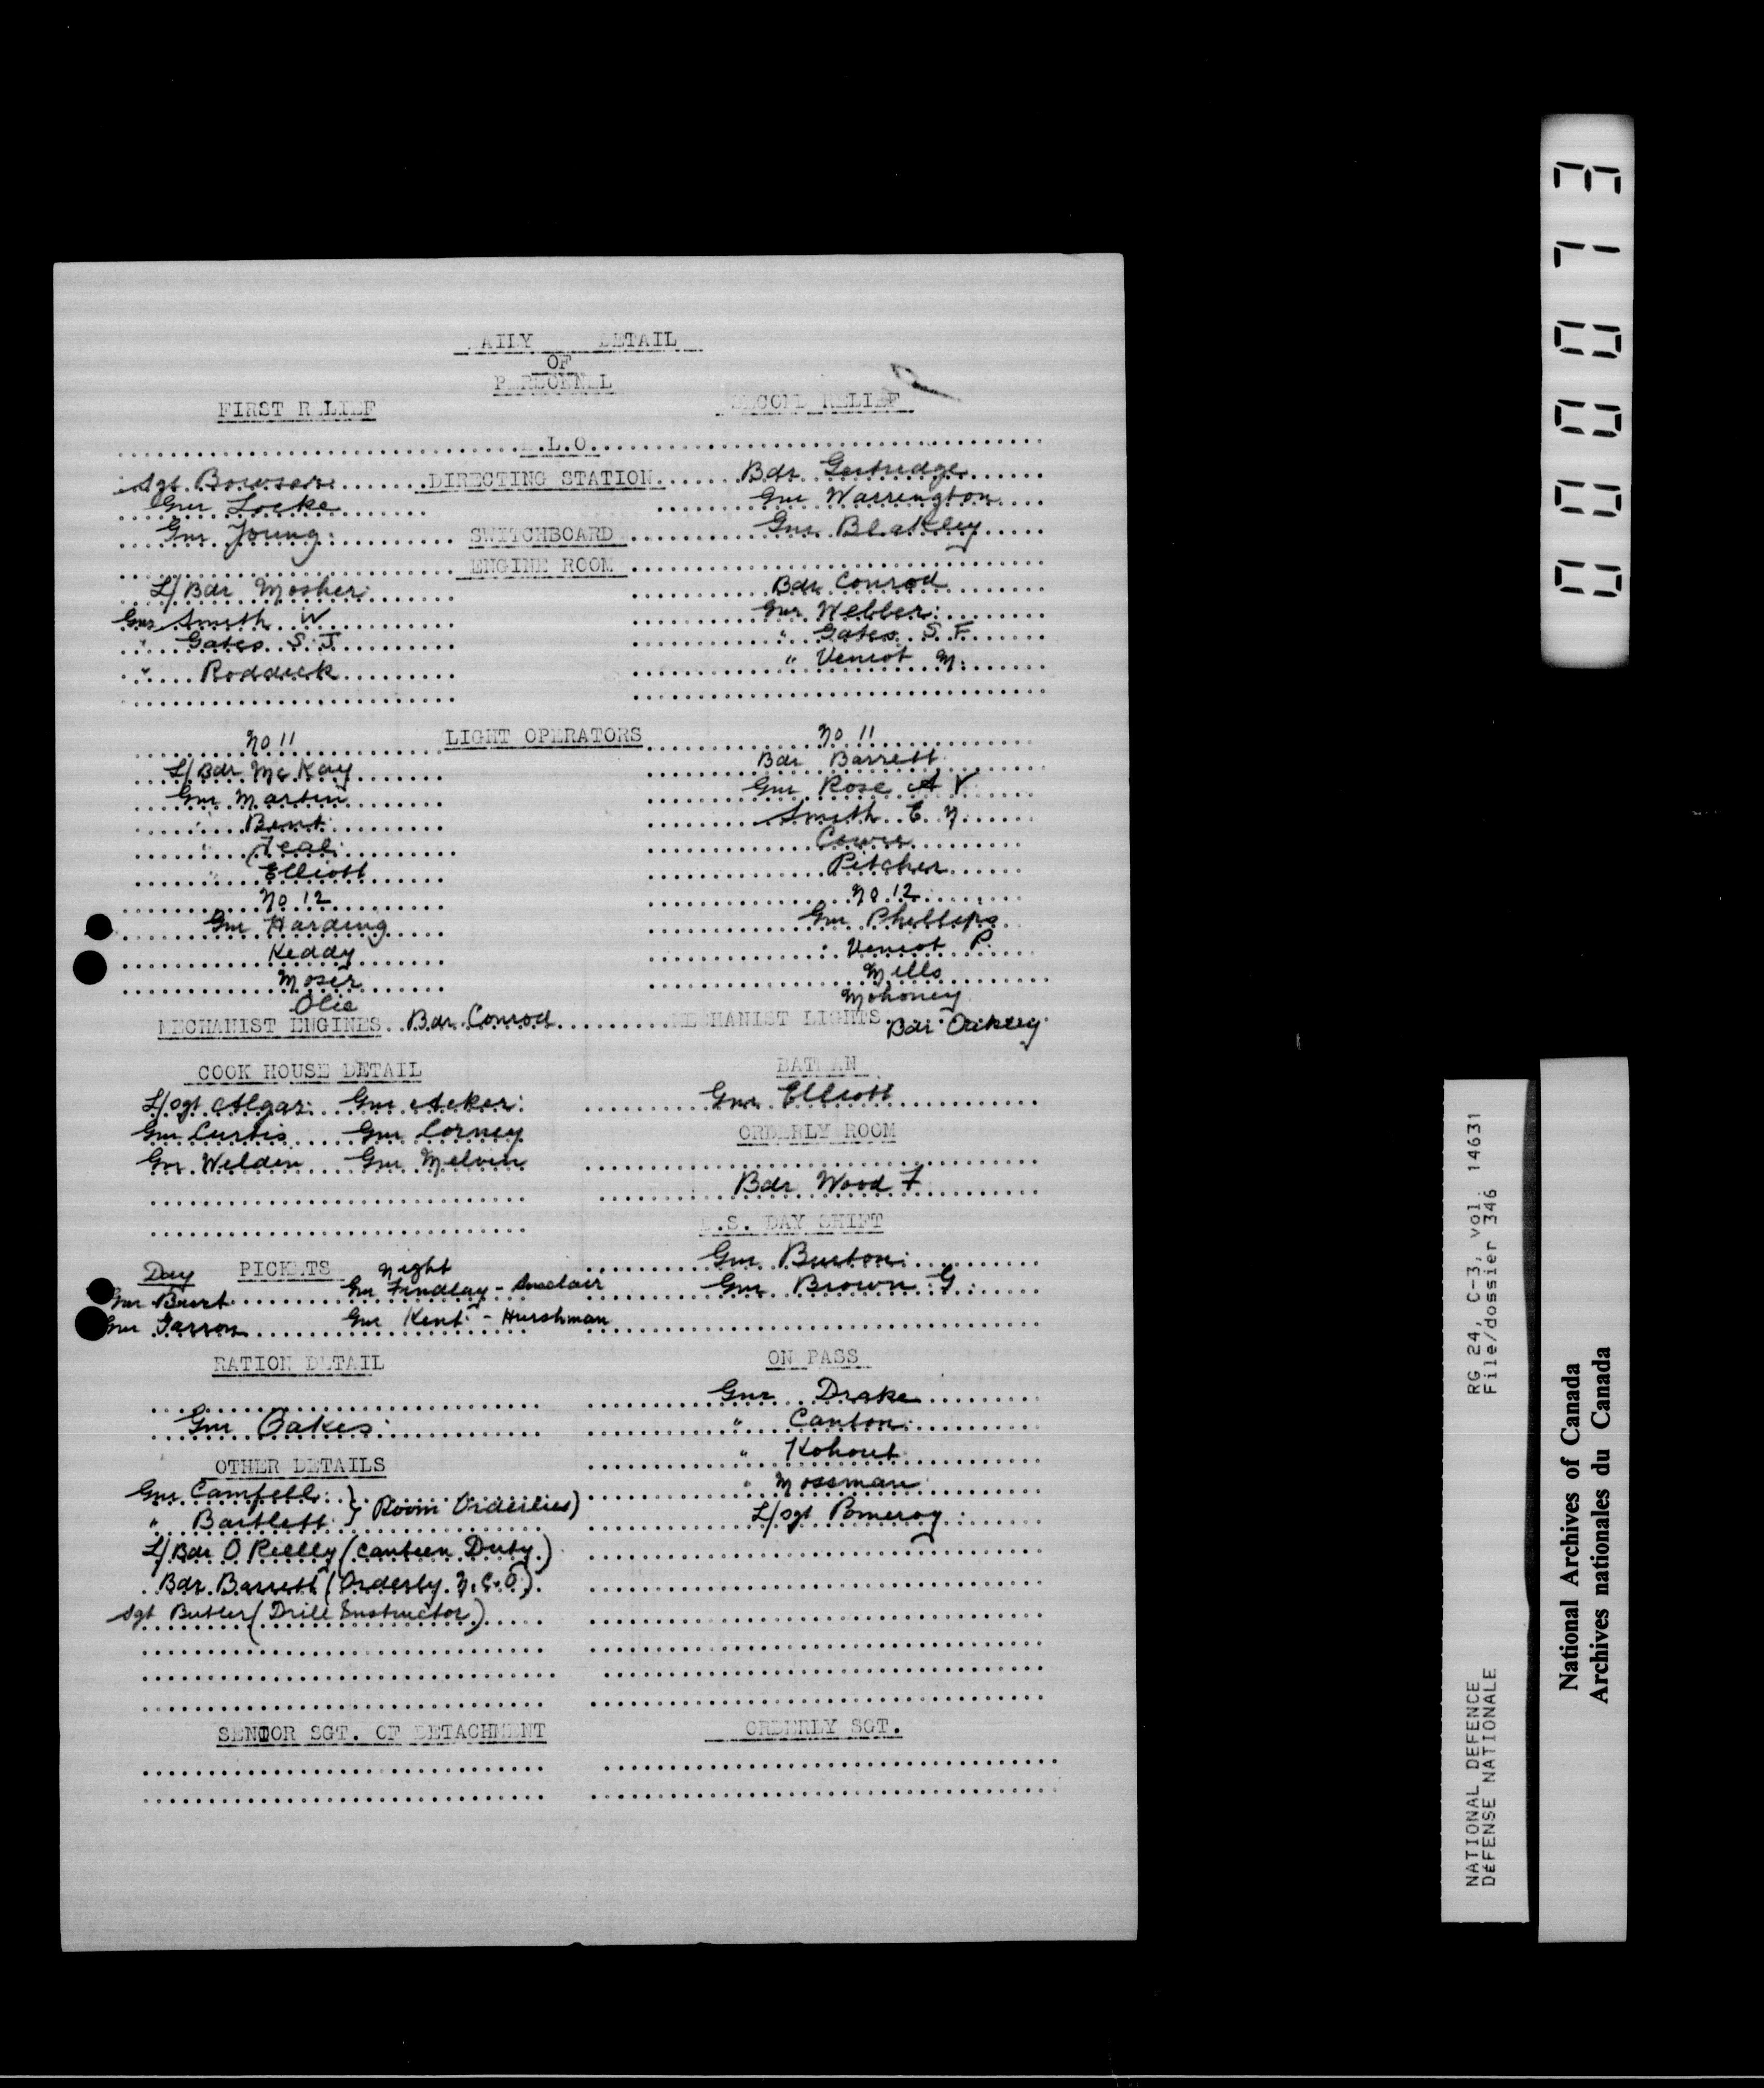 DAILY DETAIL
OF
PERSONNEL
FIRST RELIEF SECOND RELIEF
.L.O.
Sgt. DIRECTING STATION Bdr
Gnr Locke Gnr Warrington
Gnr Young SWITCHBOARD Gnr Blakley
ENGINE ROOM
L/Bdr Mosher Bdr Conrod
Gnr Smith W Gnr Webber
" Gates S. J " Gates S F
" Roddick " Veniot N.
No 11 LIGHT OPERATORS No 11
L/Bdr McKay Bdr Barrett
Gnr Martin Gnr Rose A V
Bent Smith E N
Teal
Elliott Pitcher
No 12 No 12
Gnr Harding Gnr Phillips
Keddy Veniot P.
Moser Mills
Olie Mohoney
MECHANIST ENGINES Bdr Conrod MECHANIST LIGHTS Bdr Oakley
COOK HOUSE DETAIL BATMAN
L/Sgt Algar Gnr Acker Gnr Elliott
Gnr Curtis Gnr Corney ORDERLY ROOM
Gnr Weldin Gnr Melvin
Bdr Wood F
.S. DAY SHIFT
Day PICKETS Night Gnr Burton
Gnr Gnr Findlay - Sinclair Gnr Brown G
Gnr Gnr Kent - Hurshman
RATION DETAIL ON PASS
Gnr Drake
Gnr Oakes " Canton
OTHER DETAILS " Kohout
Gnr Campell } " Mossman
" Bartlett } Room Orderlies) L/Sgt Pomeroy
L/Bdr O Rielly (Canteen Duty)
Bdr Barrett (Orderly N.C.O)
Sgt Butler (Drill Instructor)
SENIOR SGT. OF DETACHMENT ORDERLY SGT.
00000713
RG 24, C-3, vol. 14631
File/dossier 346
NATIONAL DEFENCE
DÉFENSE NATIONALE
National Archives of Canada
Archives nationales du Canada